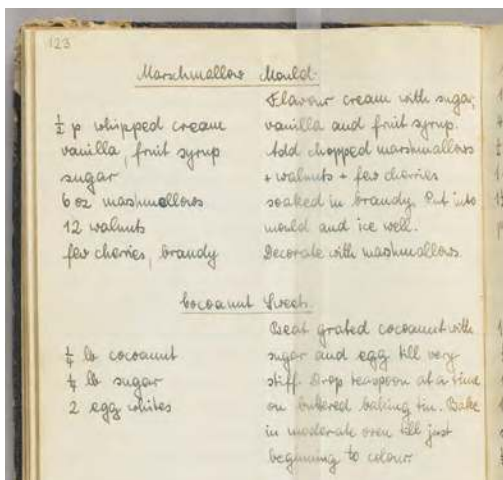 123
Marschmallow Mould.
½ p whipped cream
vanilla, fruit syrup
sugar
6 oz mashmellows
12 walnuts
few cherries, brandy
Flavour cream with sugar,
vanilla and fruit syrup.
Add chopped marshmallows
+ walnuts + few cherries
soaked in brandy. Put into
mould and ice well.
Decorate with mashmallows.
Cocoanut Sweets.
¼ lb cocoanut
¼ lb sugar
2 egg whites
Beat grated cocoanut with
sugar and egg till very
stiff. Drop teaspoon at a time
on buttered baking tin. Bake
in moderate oven till just
beginning to colour.